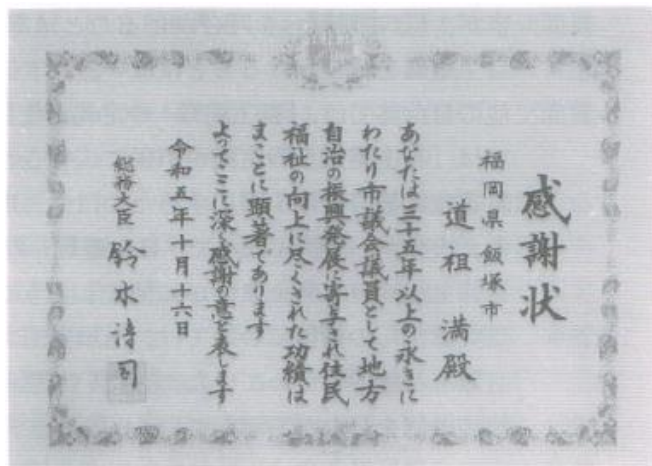 感謝状
福岡県飯塚市
道祖満殿
あなたは三十五年以上の永きに
わたり市議会議員として地方
自治の振興発展に寄与され住民
福祉の向上に尽くされた功績は
まことに顕著であります
よってここに深く感謝の意を表します
令和五年十月十六日
総務大臣 鈴木淳司